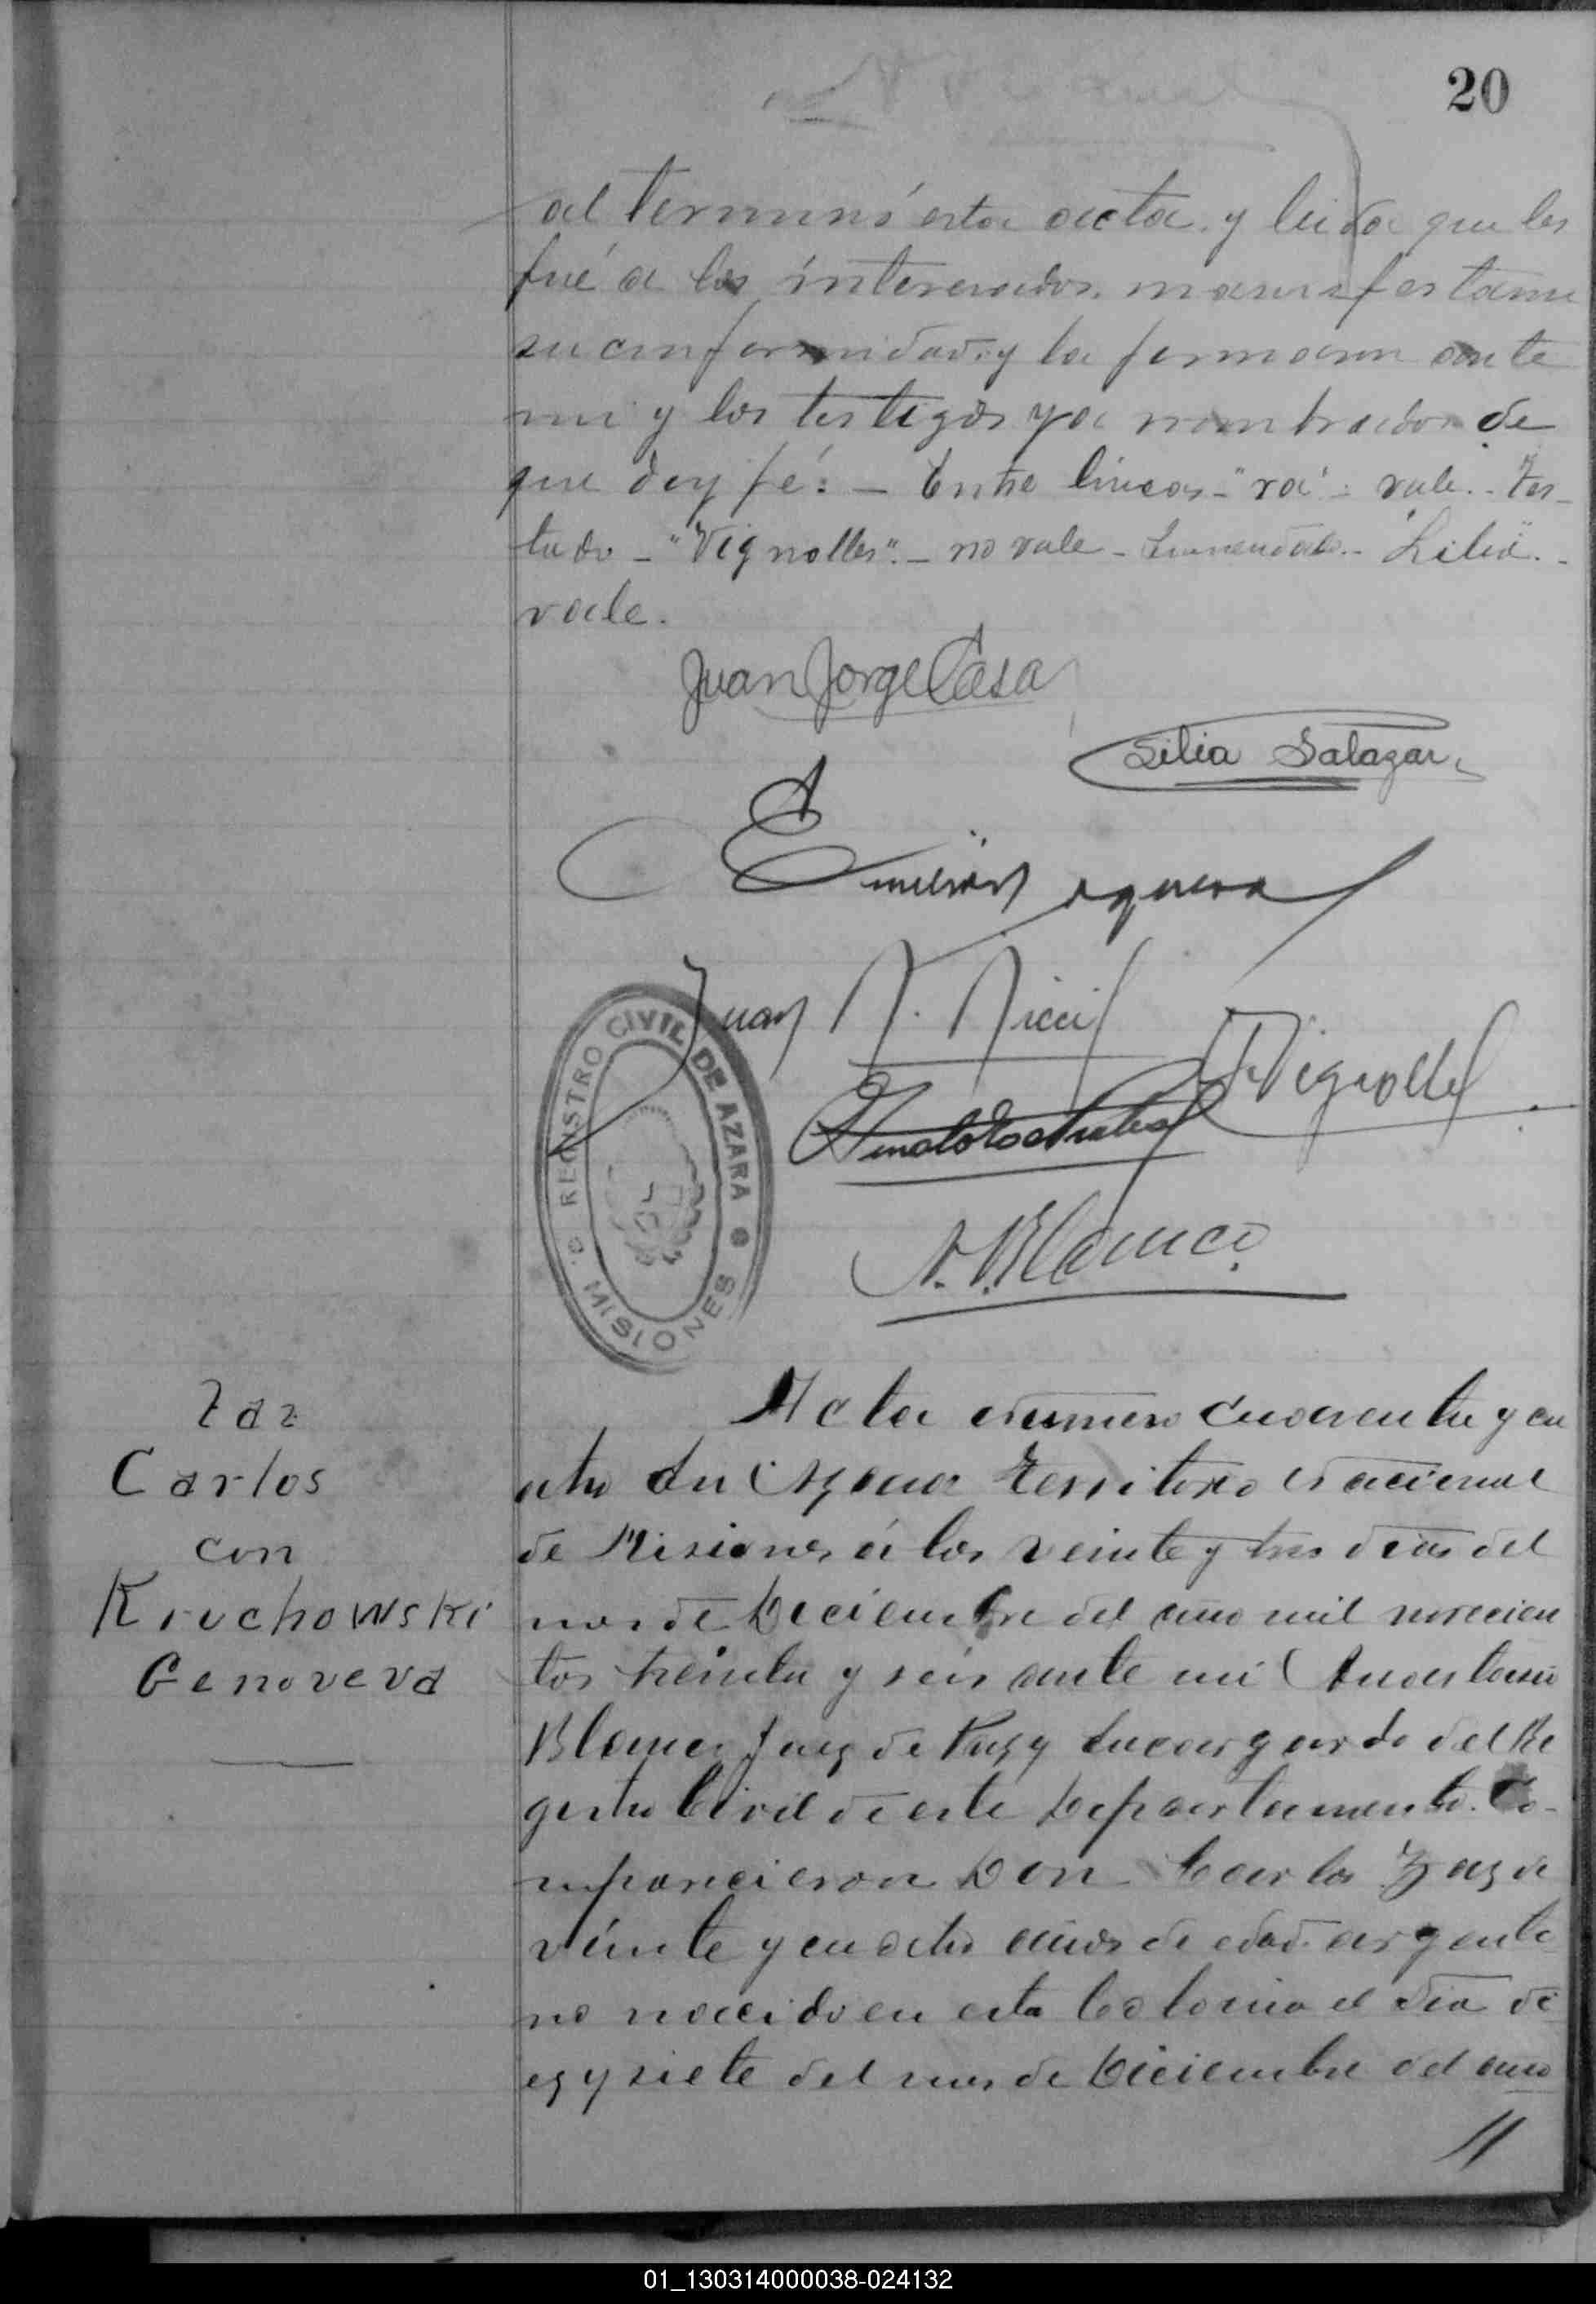 20
al termino esta acta y leida que les
fué a los interesados. manifestaron
su conformidad y la firmaron ante
mi y los testigos ya nombrados de
que doy fé: - Entre lineas - "ra" - vale. - Tes-
tado - "Vignolles". - no vale - Enmendado - "Lilia". -
vale.
Juan Jorge Casa
Lilia Salazar
Juan Ricci
Vignolles
A. Blanco.
REGISTRO CIVIL DE AZARA
MISIONES
Zaz
Carlos
con
Kruchowski
Genoveva
Acta número Cuarenta y cu
atro En Azara Territorio Nacional
de Misiones á los veinte y tres dias del
mes de Diciembre del año mil novecien
tos treinta y seis ante mi Anastasio
Blanco Juez de Paz y Encargado del Re
gistro Civil de este Departamento. Co-
mparecieron Don Carlos Zaz de
veinte y cuatro años de edad argenti
no nacido en esta Colonia el dia di
ez y siete del mes de Diciembre del año
//
01_130314000038-024132